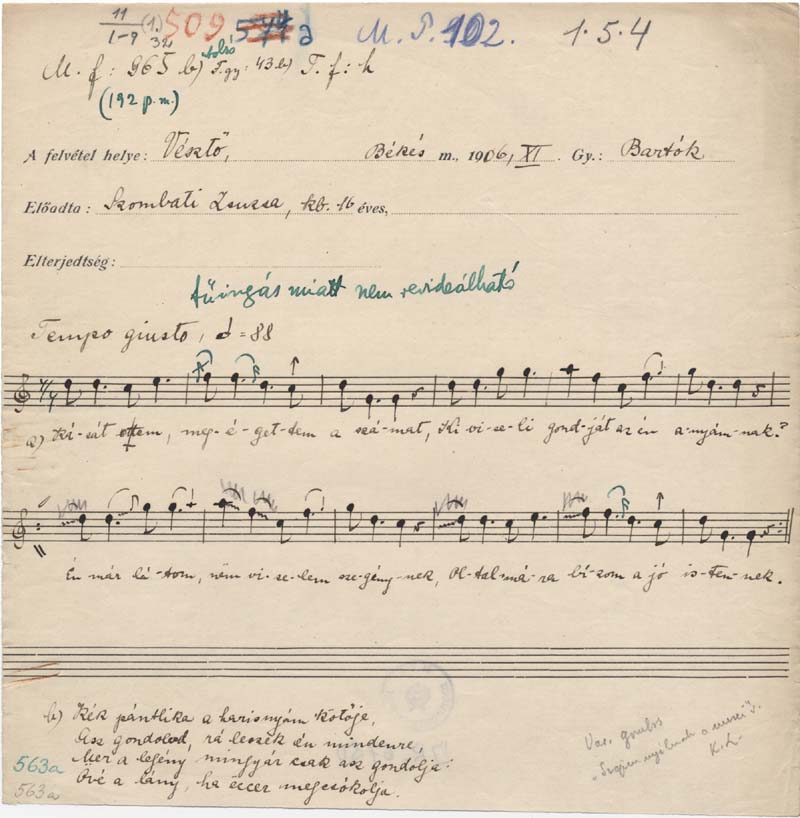 11 (1.) 509 544a M. P. 102. 1.5.4
1-9 32
M. f: 965 b) alsó T.gy: 43b) T. f: h
(192 p.m.)
A felvétel helye: Vésztő, Békés m., 1906, XI. Gy.: Bartók
Előadta: Szombati Zsuzsa, kb. 16 éves,
Elterjedtség:
tűingás miatt nem revideálható
Tempo giusto, = 88
a) Ká-sát ettem, meg-é-get-tem a szá-mat, Ki vi-se-li gond-ját az én a-nyám-nak?
Én már lá-tom, nem vi-se-lem sze-gény-nek, Ol-tal-má-ra bí-zom a jó is-ten-nek.
b) Kék pántlika a harisnyám kötője,
Asz gondolod, rá leszek én mindenre,
563a Mer a legény mingyár csak asz gondolja:
563a Övé a lány, ha éccer megcsókolja.
Var. gombos
K. L.